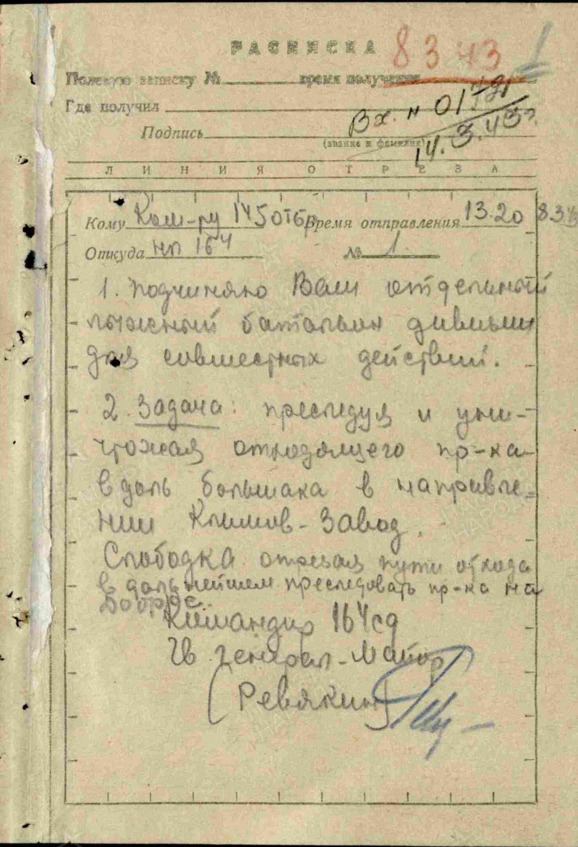 РАСПИСКА
8 3 43
Полевую записку № время получения
Где получил
Вх. н 01
Подпись
(звание и фамилия)
14.3.43г.
ЛИНИЯ ОТРЕЗА
Кому Ком-ру 145 отбр Время отправления 13.20 8 3 43
Откуда нп 164 № 1.
1. Подчиняю Вам отдельный
лыжный батальон дивизии
для совместных действий.
2. Задача: преследуя и уни-
чтожая отходящего пр-ка
вдоль большака в направле-
нии Климов-Завод.
Слободка отрезая пути отхода
в дальнейшем преследовать пр-ка на
Командир 164 сд
гв генерал-майор
(Ревякин)